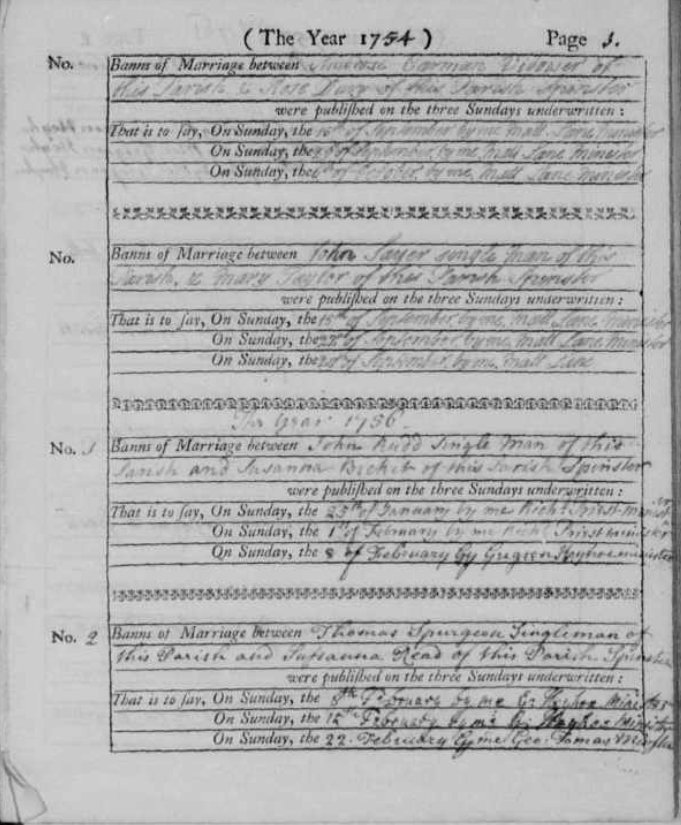 ( The Year 1754 ) Page 1.
No. Banns of Marriage between Carman Widower of
this Parish & Rose of this Parish Spinster
were publiſhed on the three Sundays underwritten :
That is to ſay, On Sunday, the of September by me Matt Lane Minister
On Sunday, the of September by me Matt Lane Minister
On Sunday, the 6th of October by me Matt Lane Minister
No. Banns of Marriage between John Sayer single Man of this
Parish, & Mary Taylor of this Parish Spinster
were publiſhed on the three Sundays underwritten :
That is to ſay, On Sunday, the 15th of September by me, Matt Lane Minister
On Sunday, the 22d of September by me Matt Lane Minister
On Sunday, the 29th of September by me Matt Lane
The Year 1756
No. 1 Banns of Marriage between John Rudd Single Man of this
Parish and Susanna Becket of this Parish Spinster
were publiſhed on the three Sundays underwritten :
That is to ſay, On Sunday, the 25th of January by me Richd Priest Minister
On Sunday, the 1st of February by me Richd Priest minister
On Sunday, the 8 of February By minister
No. 2 Banns of Marriage between Thomas Spurgeon Singleman of
this Parish and Suſsanna Read of this Parish Spinster
were publiſhed on the three Sundays underwritten :
That is to ſay, On Sunday, the 8th February by me G: Minister
On Sunday, the 15th February by me G:
On Sunday, the 22. February By me Geo: